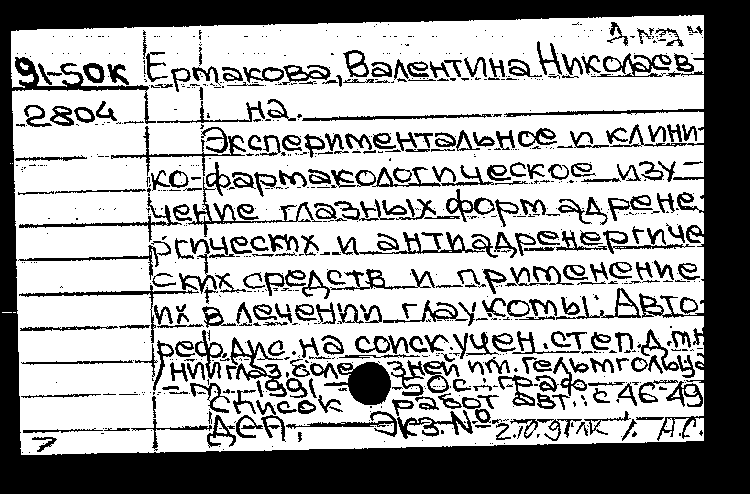 Д-мед н
91-50К Ермакова, Валентина Николаев-
2804 на.
Экспериментальное и клини-
ко-фармакологическое изу-
чение глазных форм адрене-
ргических и антиадренергиче
ских средств и применение
их в лечении глаукомы: Авто-
реф.дис.на соиск.учен.степ.д.м.н
/НИИ глаз.боле зней им.Гельмгольца
- М., 1991 - 50с.:граф.
Список работ авт.: с 46-49
ДСП, Экз.№ 2.10.91